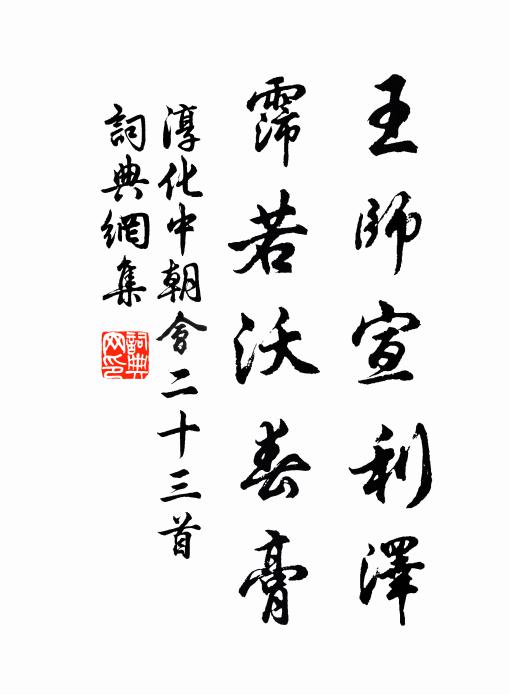 王師宣利澤
霈若沃春膏
淳化中朝會二十三首
詞典網集
詞典網印